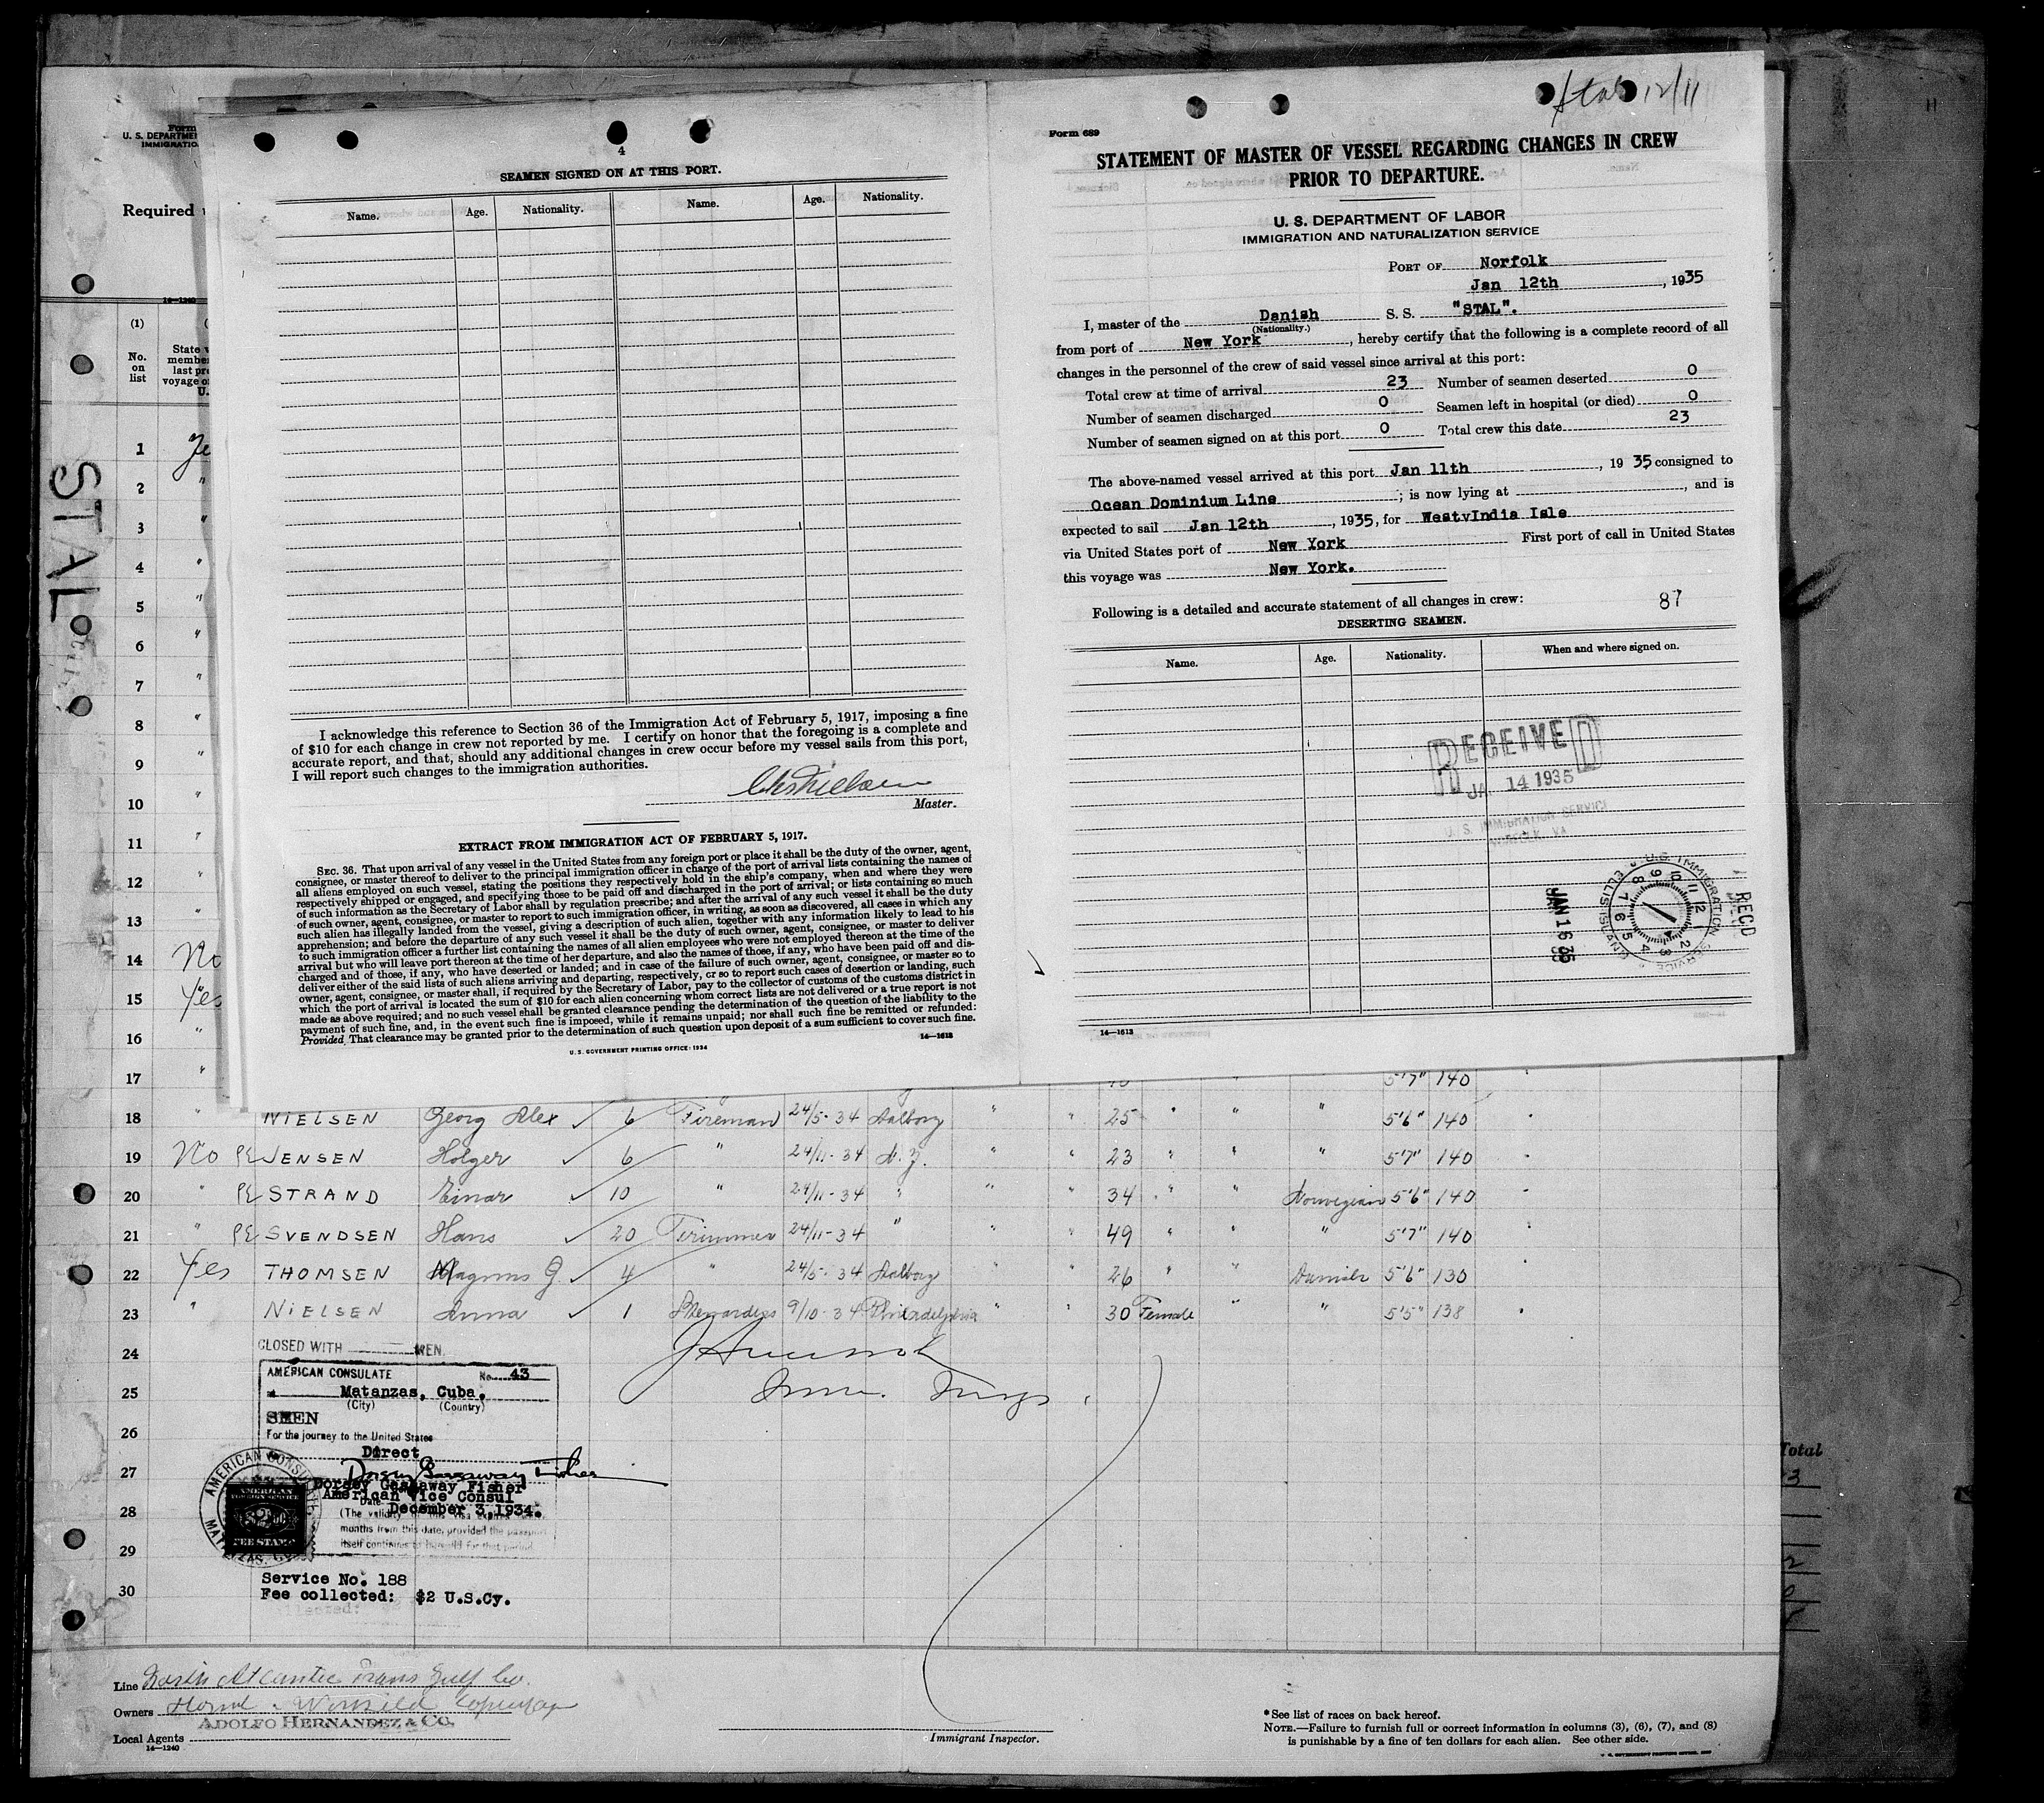 Stal 12/11
11
Form
U. S. DEPARTME
IMMIGRATIO
Required
14—1240
(1)
No.
on
list
State
membe
last pre
voyage of
U.
STAL
1
2 "
3 "
4 "
5 "
6 "
7 "
8 "
9 "
10 "
11 "
12 "
13 "
14 No
15 Yes
16 "
17 "
4
SEAMEN SIGNED ON AT THIS PORT.
Name. Age. Nationality. Name. Age. Nationality.
I acknowledge this reference to Section 36 of the Immigration Act of February 5, 1917, imposing a fine
of $10 for each change in crew not reported by me. I certify on honor that the foregoing is a complete and
accurate report, and that, should any additional changes in crew occur before my vessel sails from this port,
I will report such changes to the immigration authorities.
Master.
EXTRACT FROM IMMIGRATION ACT OF FEBRUARY 5, 1917.
SEC. 36. That upon arrival of any vessel in the United States from any foreign port or place it shall be the duty of the owner, agent,
consignee, or master thereof to deliver to the principal immigration officer in charge of the port of arrival lists containing the names of
all aliens employed on such vessel, stating the positions they respectively hold in the ship's company, when and where they were
respectively shipped or engaged, and specifying those to be paid off and discharged in the port of arrival; or lists containing so much
of such information as the Secretary of Labor shall by regulation prescribe; and after the arrival of any such vessel it shall be the duty
of such owner, agent, consignee, or master to report to such immigration officer, in writing, as soon as discovered, all cases in which any
such alien has illegally landed from the vessel, giving a description of such alien, together with any information likely to lead to his
apprehension; and before the departure of any such vessel it shall be the duty of such owner, agent, consignee, or master to deliver
to such immigration officer a further list containing the names of all alien employees who were not employed thereon at the time of the
arrival but who will leave port thereon at the time of her departure, and also the names of those, if any, who have been paid off and dis-
charged and of those, if any, who have deserted or landed; and in case of the failure of such owner, agent, consignee, or master so to
deliver either of the said lists of such aliens arriving and departing, respectively, or so to report such cases of desertion or landing, such
owner, agent, consignee, or master shall, if required by the Secretary of Labor, pay to the collector of customs of the customs district in
which the port of arrival is located the sum of $10 for each alien concerning whom correct lists are not delivered or a true report is not
made as above required; and no such vessel shall be granted clearance pending the determination of the question of the liability to the
payment of such fine, and, in the event such fine is imposed, while it remains unpaid; nor shall such fine be remitted or refunded:
Provided, That clearance may be granted prior to the determination of such question upon deposit of a sum sufficient to cover such fine.
14—1613
U. S. GOVERNMENT PRINTING OFFICE: 1934
Form 689
STATEMENT OF MASTER OF VESSEL REGARDING CHANGES IN CREW
PRIOR TO DEPARTURE.
U. S. DEPARTMENT OF LABOR
IMMIGRATION AND NATURALIZATION SERVICE
PORT OF Norfolk
Jan 12th, 1935
I, master of the Danish S. S. "STAL".
(Nationality.)
from port of New York, hereby certify that the following is a complete record of all
changes in the personnel of the crew of said vessel since arrival at this port:
Total crew at time of arrival 23 Number of seamen deserted 0
Number of seamen discharged 0 Seamen left in hospital (or died) 0
Number of seamen signed on at this port 0 Total crew this date 23
The above-named vessel arrived at this port Jan 11th, 1935 consigned to
Ocean Dominium Line; is now lying at , and is
expected to sail Jan 12th, 1935, for WestvIndia Isle
via United States port of New York First port of call in United States
this voyage was New York.
Following is a detailed and accurate statement of all changes in crew: 87
DESERTING SEAMEN.
Name. Age. Nationality. When and where signed on.
RECEIVED
JA 14 1935
U. S. IMMIGRATION SERVICE
NORFOLK, VA.
U.S. IMMIGRATION SERVICE ELLIS ISLAND
JAN 16 35
RECD
14—1613
5'7" 140
18 " NIELSEN Georg Alex 6 Fireman 24/5-34 Aalborg " " 25 " " " 5'6" 140
19 No PE JENSEN Holger 6 " 24/11-34 N.Y. " " 23 " " " 5'7" 140
20 " PE STRAND Einar 10 " 24/11-34 " " " 34 " " Norwegian 5'6" 140
21 " PE SVENDSEN Hans 20 Trimmer 24/11-34 " " " 49 " " " 5'7" 140
22 Yes THOMSEN Magnus G. 4 " 24/5-34 Aalborg " " 26 " " Danish 5'6" 130
23 " NIELSEN Anna 1 Stewardess 9/10-34 Philadelphia " " 30 Female " " 5'5" 138
24
25
26
27
28
29
30
CLOSED WITH MEN
AMERICAN CONSULATE No. 43
Matanzas, Cuba.
(City) (Country)
SEEN
For the journey to the United States
Direct
Dorsey Gassaway Fisher
Dorsey Gassaway Fisher
American Vice Consul
Date December 3, 1934.
(The validity of this visa expires
months from this date, provided the passport
itself continues to be valid for that period
AMERICAN CONSULATE
MATANZAS, CUBA
AMERICAN
FOREIGN SERVICE
$2.00
FEE STAMP
Service No. 188
Fee collected: $2 U.S.Cy.
Total
3
Line North Atlantic Trans Gulf Co.
Owners
ADOLFO HERNANDEZ & CO.
Local Agents
14—1240
Immigrant Inspector.
*See list of races on back hereof.
NOTE.—Failure to furnish full or correct information in columns (3), (6), (7), and (8)
is punishable by a fine of ten dollars for each alien. See other side.